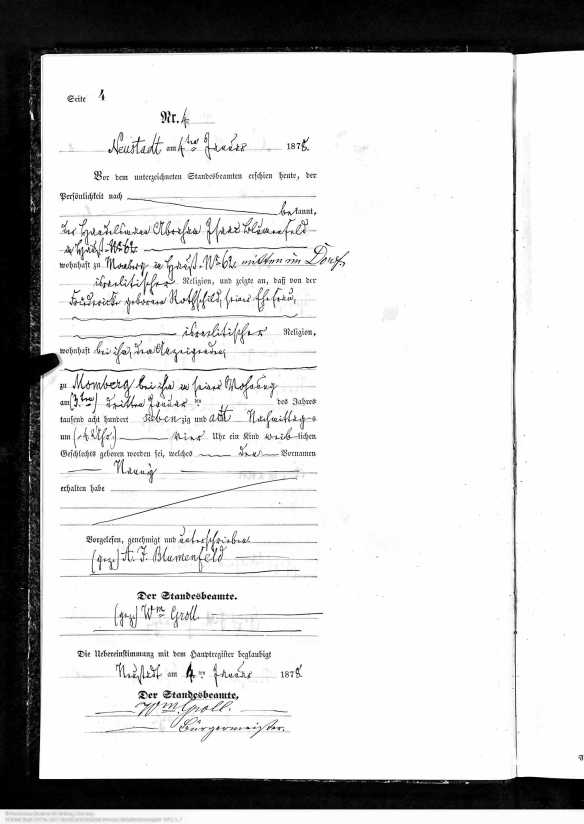 Seite 4
Nr. 4.
Neustadt am 4ten Januar 1878.
Vor dem unterzeichneten Standesbeamten erschien heute, der
Persönlichkeit nach
bekannt,
der Handelsmann Abraham Isaac Blumenfeld
in Hauß No 62
wohnhaft zu Momberg in Hauß No 62 mitten im Dorf,
israelitischer Religion, und zeigte an, daß von der
Friedericke geborenen Rothschild, seiner Ehefrau,
israelitischer Religion,
wohnhaft bei ihm, dem Anzeigenden,
zu Momberg bei ihm in seiner Wohnung
am (3ten) dritten Januar des Jahres
tausend acht hundert siebenzig und acht Nachmittags
um (4 Uhr) vier Uhr ein Kind weiblichen
Geschlechts geboren worden sei, welches den Vornamen
Nanny
erhalten habe
Vorgelesen, genehmigt und unterschrieben
(gez.) A. I. Blumenfeld
Der Standesbeamte.
(gez.) Wm Groll.
Die Uebereinstimmung mit dem Hauptregister beglaubigt
Neustadt am 4ten Januar 1878.
Der Standesbeamte,
Wm. Groll.
Bürgermeister.